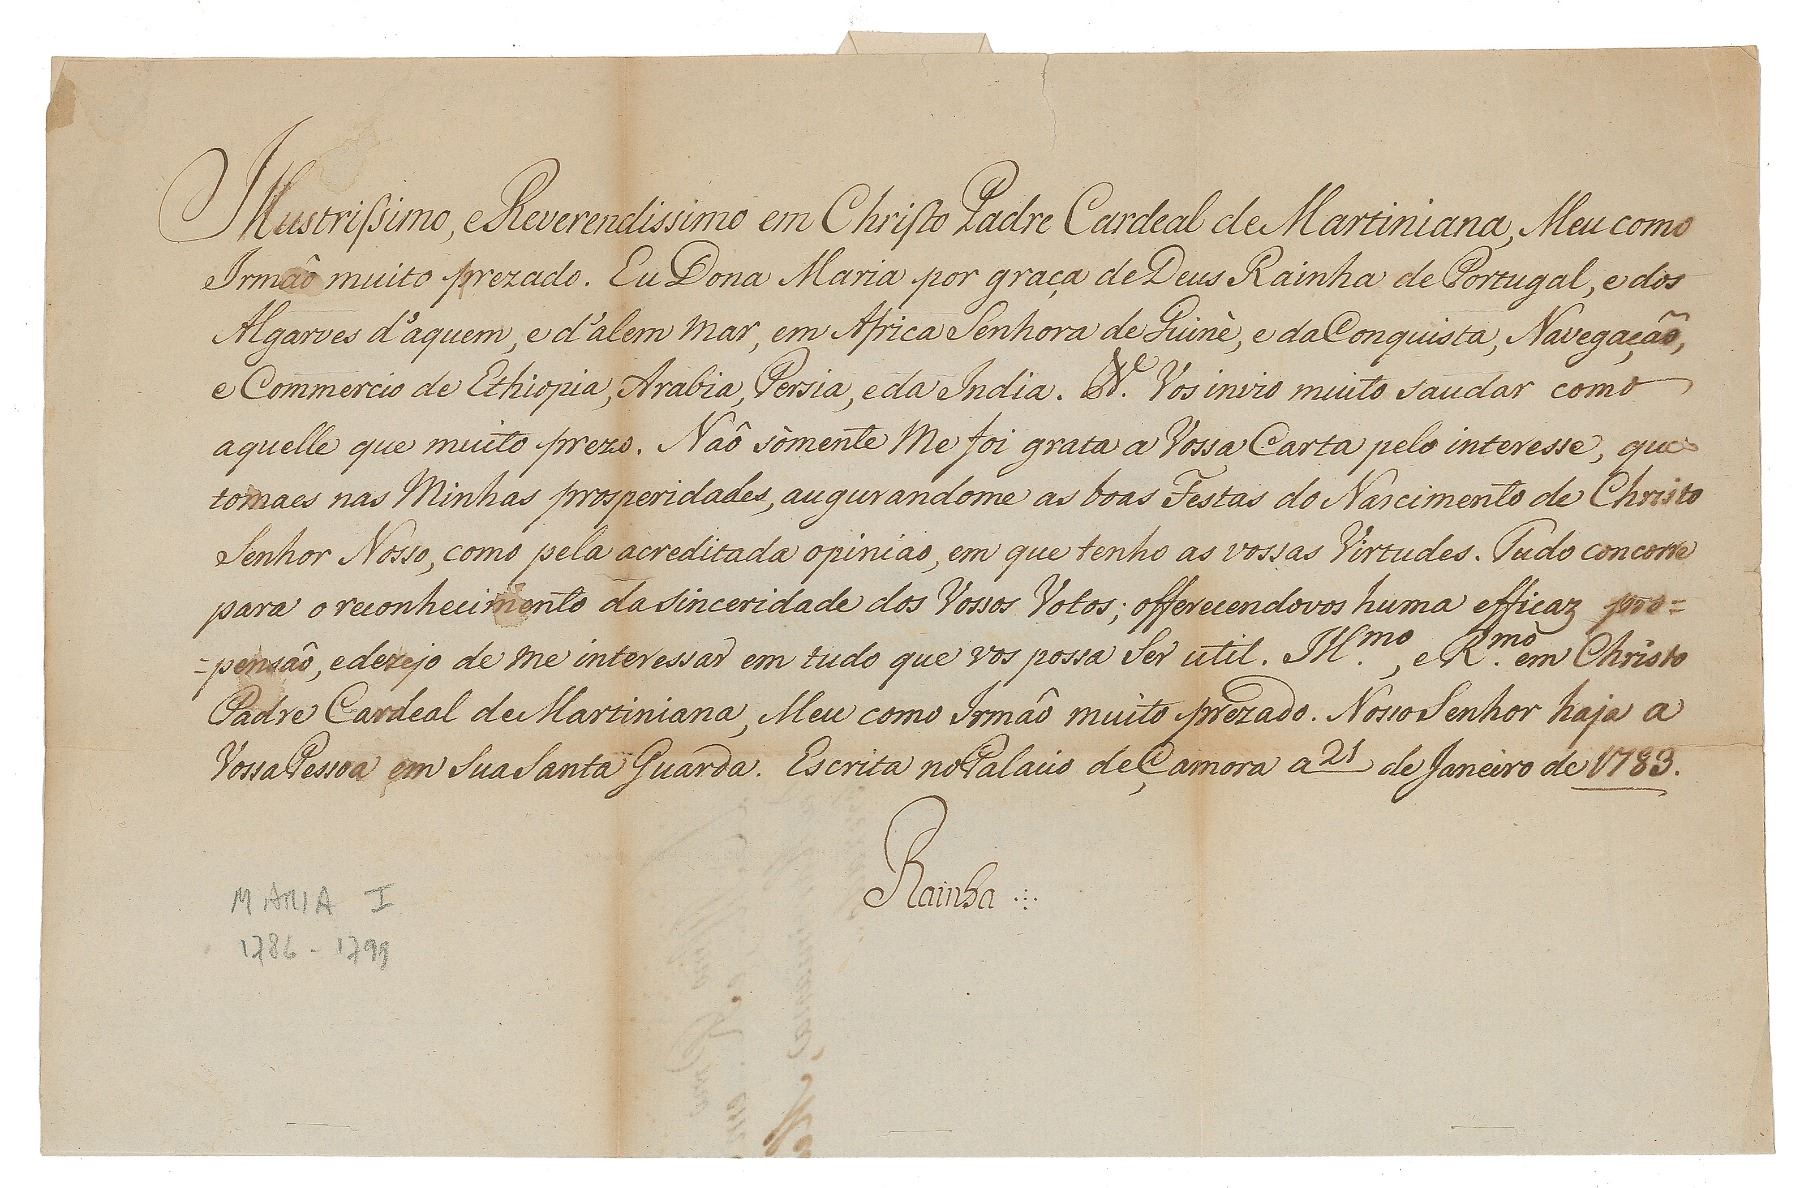 Illustrissimo, e Reverendissimo em Christo Padre Cardeal de Martiniana, Meu como
Irmaõ muito prezado. Eu Dona Maria por graça de Deus Rainha de Portugal, e dos
Algarves d'aquem, e d'alem mar, em Africa Senhora de Guinè, e da Conquista, Navegaçaõ,
e Commercio de Ethiopia, Arabia, Persia, e da India. &c. Vos invio muito saudar como
aquelle que muito prezo. Naõ sòmente Me foi grata a Vossa Carta pelo interesse, que
tomaes nas Minhas prosperidades, augurandome as boas Festas do Nascimento de Christo
Senhor Nosso, como pela acreditada opiniao, em que tenho as vossas Virtudes. Tudo concorre
para o reconhecimento da sinceridade dos Vossos Votos; offerecendovos huma efficaz pro=
=pensaõ, e dezejo de me interessar em tudo que vos possa ser util. Ill.mo, e R.mo em Christo
Padre Cardeal de Martiniana, Meu como Irmaõ muito prezado. Nosso Senhor haja a
Vossa Pessoa em Sua Santa Guarda. Escrita no Palacio de Çamora a 21 de Janeiro de 1783.
Rainha
MARIA I
1786 - 1799